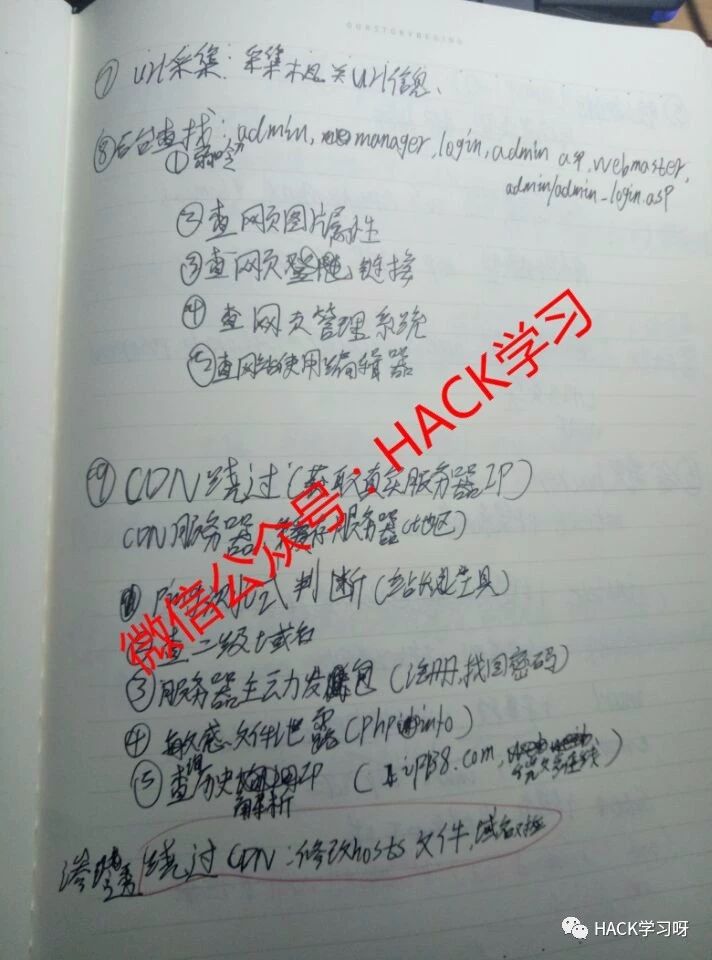 OURSTORYBEGING
⑦ url采集：采集相关url信息、
⑧后台查找：admin, manager, login, admin asp, webmaster,
① 弱口令
admin/admin_login.asp
②查网页图片属性
③查网页链接
④查网页管理系统
⑤查网站使用编辑器
⑨ CDN绕过(获取真实服务器IP)
CDN服务器、缓存服务器(地区)
判断(站长工具)
②查二级域名
③服务器主动发包(注册,找回密码)
④敏感文件泄露(phpinfo)
⑤查询历史IP
解析
渗透 绕过CDN:修改hosts文件,域名对接
微信公众号：HACK学习
HACK学习呀